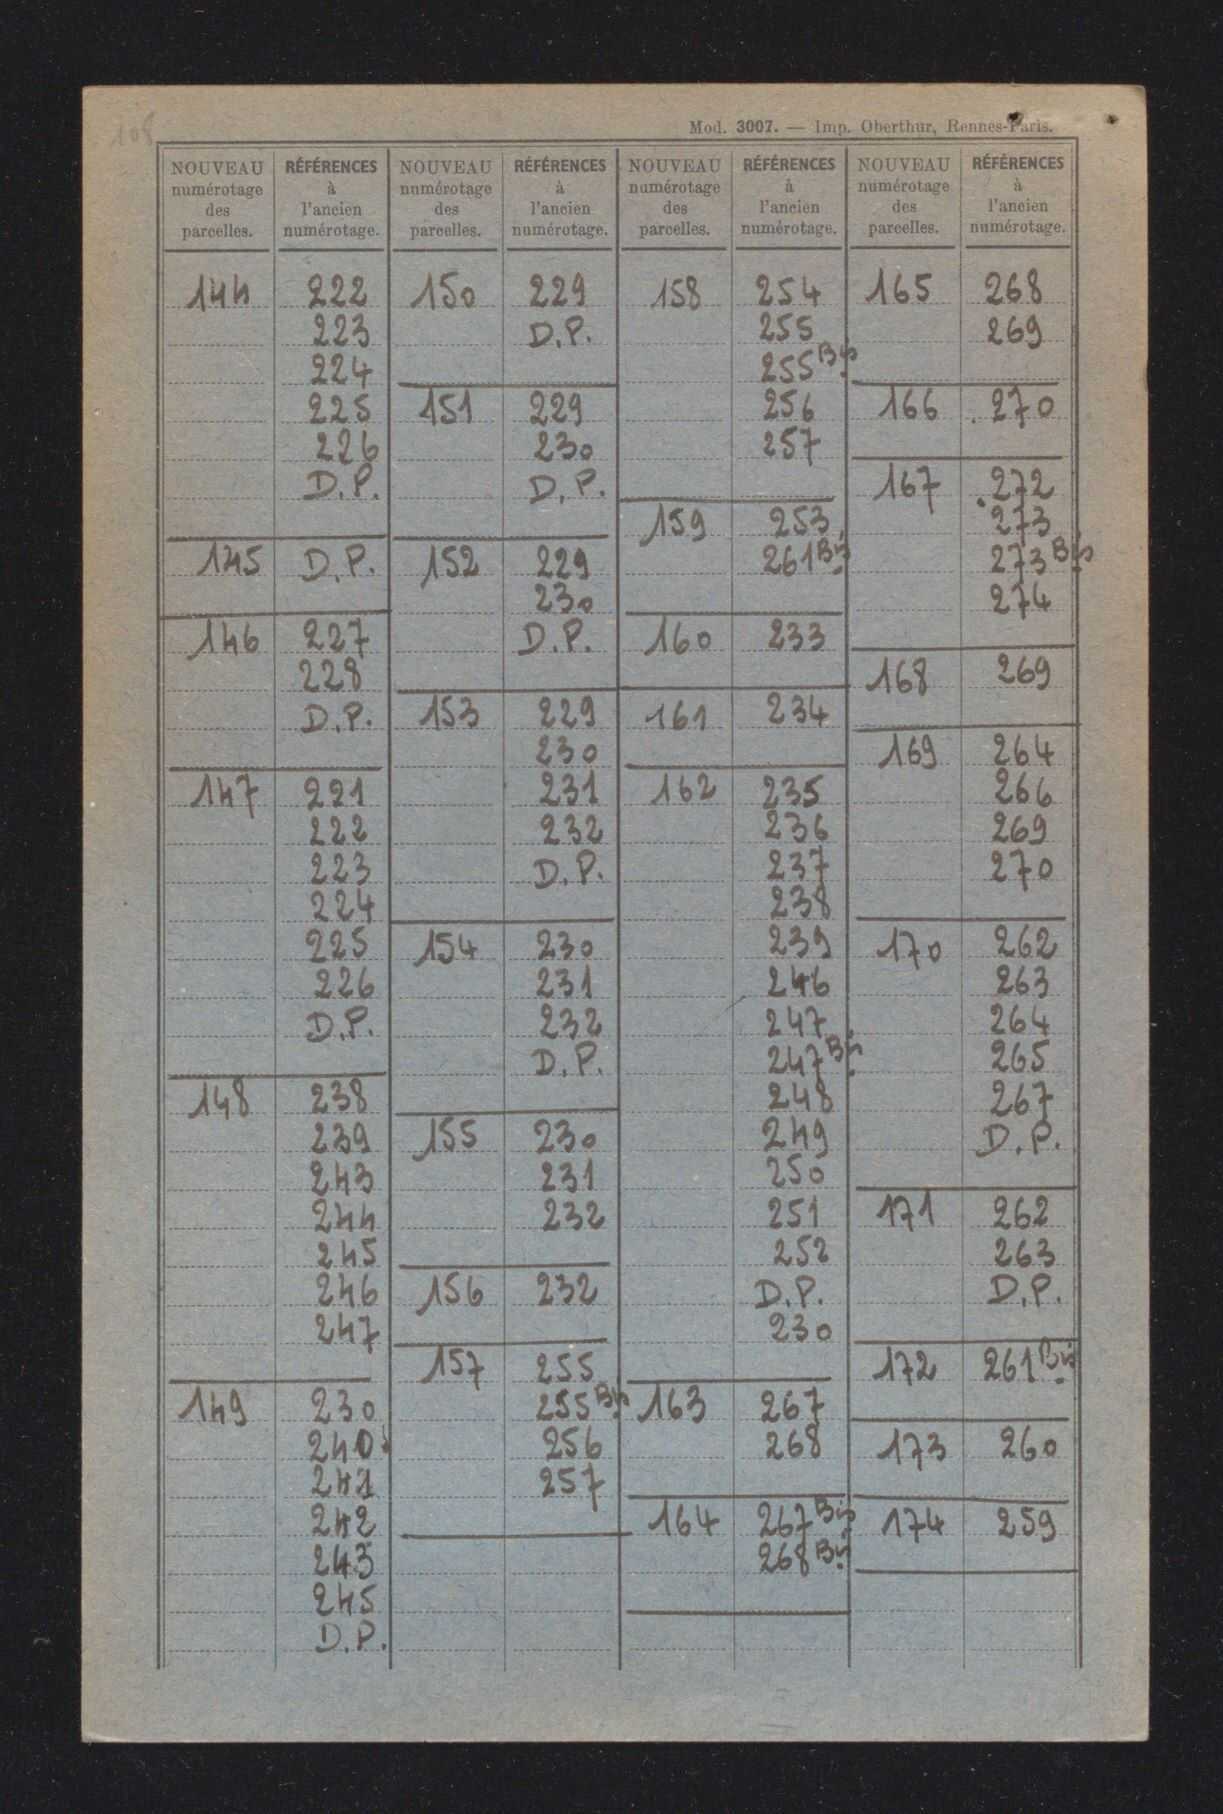 108
Mod. 3007. — Imp. Oberthur, Rennes-Paris.
NOUVEAU numérotage des parcelles.
RÉFÉRENCES à l'ancien numérotage.
144 222
223
224
225
226
D.P.
145 D.P.
146 227
228
D.P.
147 221
222
223
224
225
226
D.P.
148 238
239
243
244
245
246
247
149 230
240
241
242
243
245
D.P.
NOUVEAU numérotage des parcelles.
RÉFÉRENCES à l'ancien numérotage.
150 229
D.P.
151 229
230
D.P.
152 229
230
D.P.
153 229
230
231
232
D.P.
154 230
231
232
D.P.
155 230
231
232
156 232
157 255
255 Bis
256
257
NOUVEAU numérotage des parcelles.
RÉFÉRENCES à l'ancien numérotage.
158 254
255
255 Bis
256
257
159 253
261 Bis
160 233
161 234
162 235
236
237
238
239
246
247
247 Bis
248
249
250
251
252
D.P.
230
163 267
268
164 267 Bis
268 Bis
NOUVEAU numérotage des parcelles.
RÉFÉRENCES à l'ancien numérotage.
165 268
269
166 270
167 272
273
273 Bis
274
168 269
169 264
266
269
270
170 262
263
264
265
267
D.P.
171 262
263
D.P.
172 261 Bis
173 260
174 259